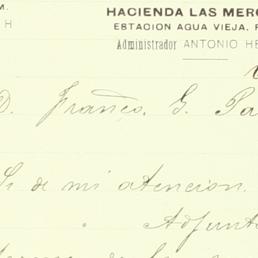 M. HACIENDA LAS MERC
H ESTACION AGUA VIEJA,
Administrador ANTONIO HE
D. Franco. G. Pa
Sr de mi atencion.
Adjunt